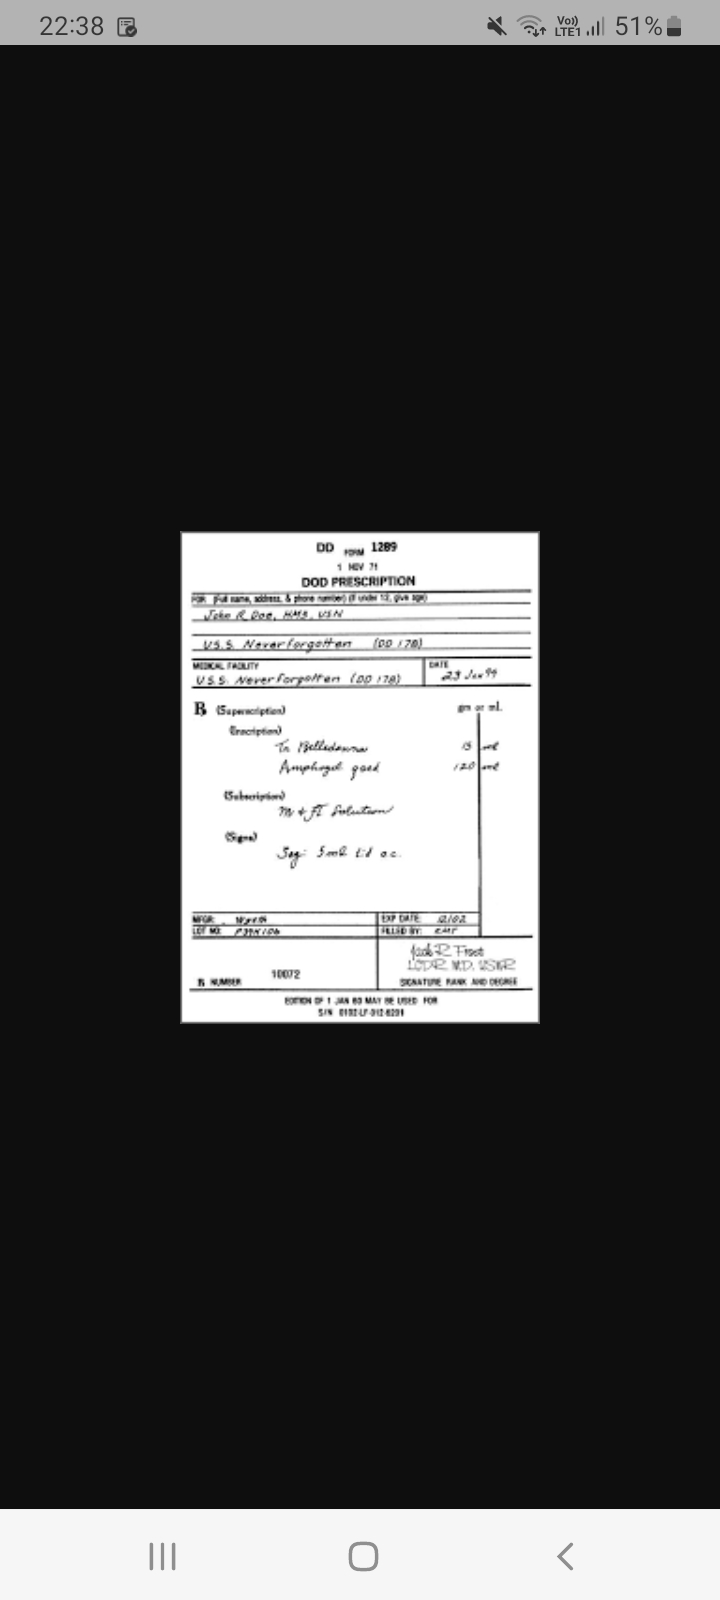 22:38 Vo)) LTE1 51%
DD FORM 1289
1 NOV 71
DOD PRESCRIPTION
FOR (Full name, address, & phone number) (If under 12, give age)
John R. Doe, HM3, USN
U.S.S. Neverforgotten (DD 178)
MEDICAL FACILITY
U.S.S. Neverforgotten (DD 178)
DATE
23 Jan 99
℞ (Superscription) gm or ml.
(Inscription)
Tr Belladonna 15 ml
Amphogel qsad 120 ml
(Subscription)
M & Ft Solution
(Signa)
Sig: 5ml tid a.c.
MFGR: EXP DATE: 12/02
LOT NO: P39K106 FILLED BY:
Jack R Frost
LCDR M.D. USNR
℞ NUMBER 10072 SIGNATURE RANK AND DEGREE
EDITION OF 1 JAN 60 MAY BE USED FOR
S/N 0102-LF-012-6201